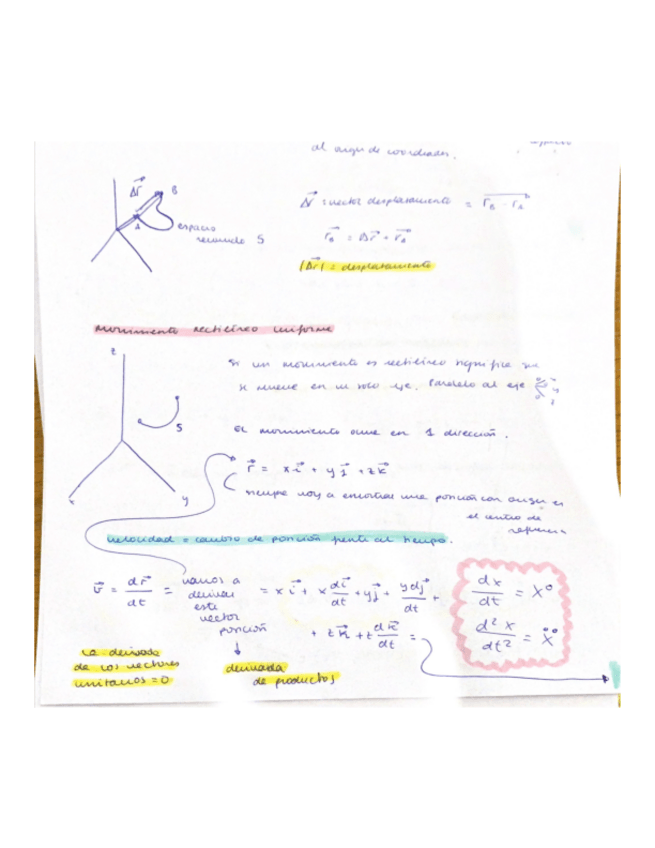 al origen de coordenadas.
Δr⃗ B
A
espacio
recorrido S
Δr⃗ : vector desplazamiento = r⃗B - r⃗A
r⃗B = Δr⃗ + r⃗A
|Δr⃗| = desplazamiento
Movimiento rectilíneo uniforme
z
Si un movimiento es rectilíneo significa que
se mueve en un solo eje. Paralelo al eje
S
El movimiento ocurre en 1 dirección.
r⃗ = x i⃗ + y j⃗ + z k⃗
x y
siempre voy a encontrar una posición con origen es
el centro de
referencia
velocidad = cambio de posición frente al tiempo.
v⃗ = dr⃗/dt = vamos a derivar este vector posición = x i⃗ + x di⃗/dt + y j⃗ + y dj⃗/dt +
+ z k⃗ + z dk⃗/dt =
dx/dt = x°
d²x/dt² = ẍ
La derivada
de los vectores
unitarios = 0
derivada
de productos